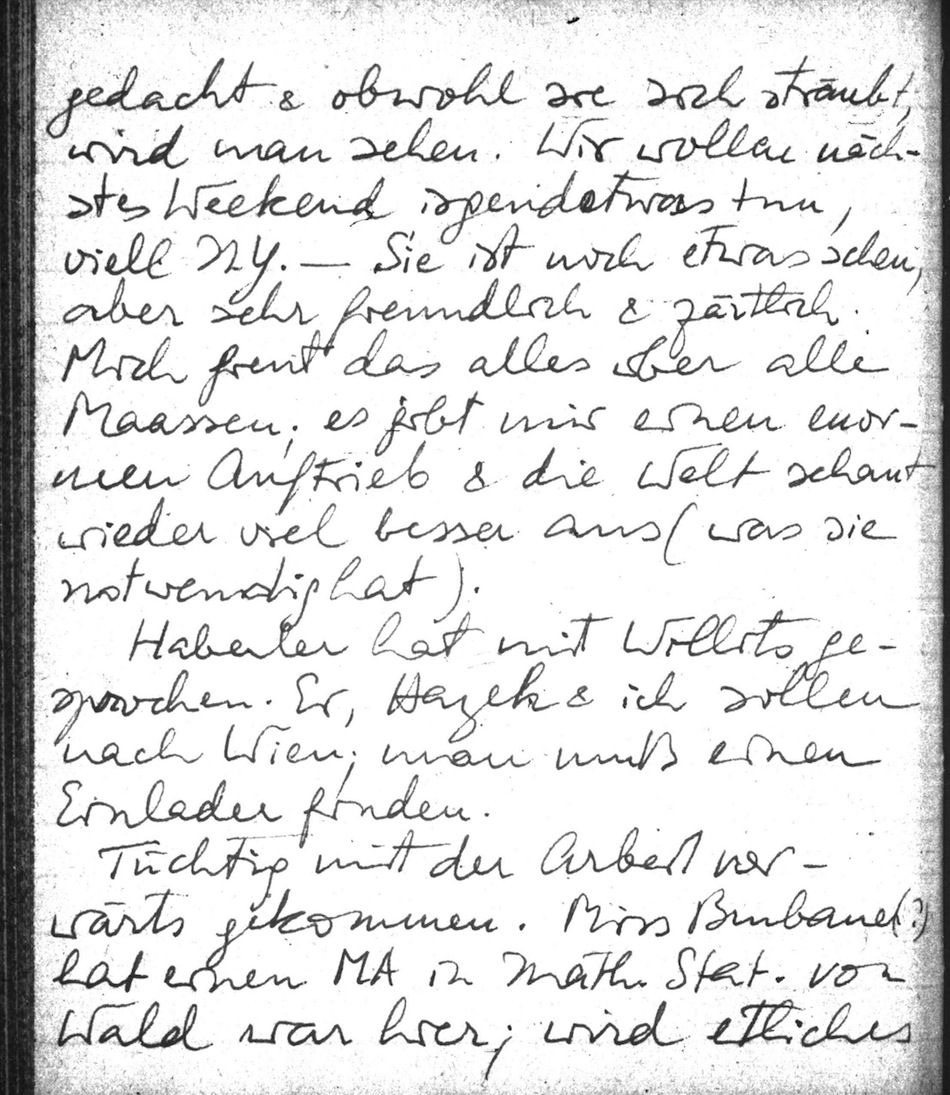 gedacht & obwohl sie sich sträubt,
wird man sehen. Wir wollen näch-
stes Weekend irgendetwas tun,
viell NY. — Sie ist noch etwas scheu,
aber sehr freundlich & zärtlich.
Mich freut das alles über alle
Maassen; es gibt mir einen enor-
men Auftrieb & die Welt schaut
wieder viel besser aus (was sie
notwendig hat).
Haberler hat mit Willits ge-
sprochen. Er, Hayek & ich sollen
nach Wien; man muß einen
Einlader finden.
Tüchtig mit der Arbeit vor-
wärts gekommen. Miss (?)
hat einen MA in Math. Stat. von
Wald war hier; wird etliches